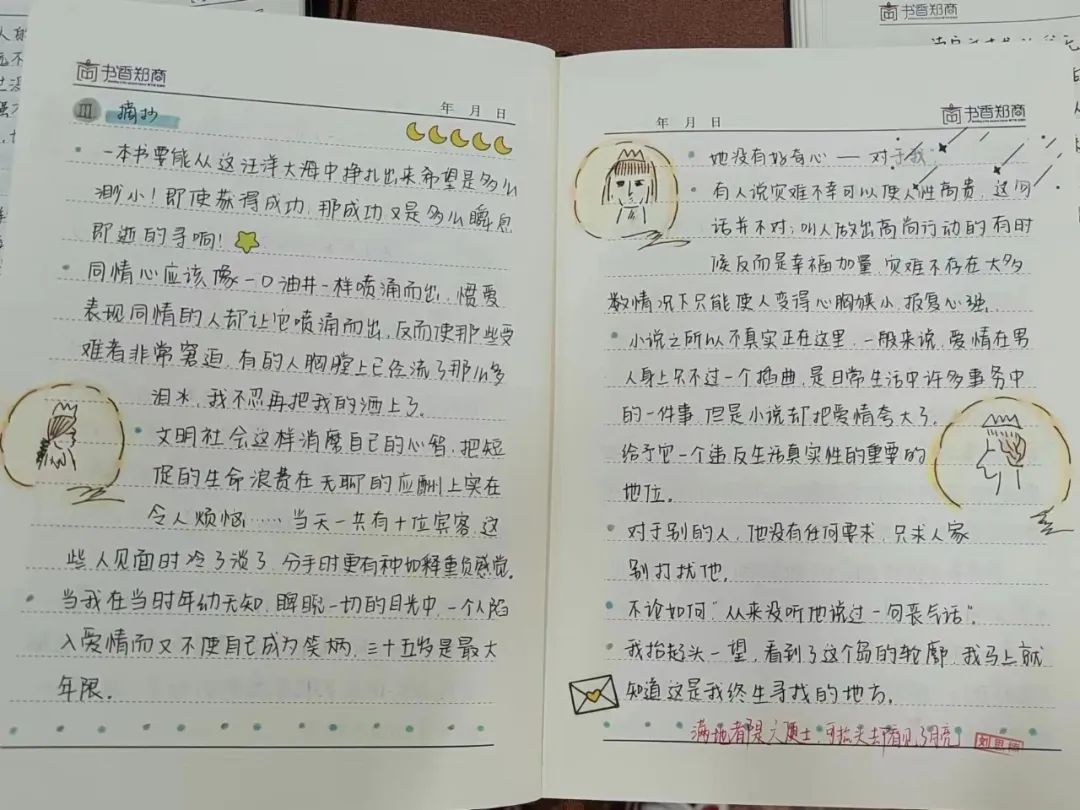 书香郑商
年 月 日
Ⅲ 摘抄
一本书要能从这汪洋大海中挣扎出来希望是多么
渺小!即使获得成功,那成功又是多么瞬息
即逝的寻响!
同情心应该像一口油井一样喷涌而出,惯爱
表现同情的人却让它喷涌而出,反而使那些受
难者非常窘迫,有的人胸膛上已经流了那么多
泪水,我不忍再把我的洒上了。
文明社会这样消磨自己的心智,把短
促的生命浪费在无聊的应酬上实在
令人烦恼……当天一共有十位宾客,这
些人见面时冷冷淡淡,分手时更有种如释重负感觉。
当我在当时年幼无知,睥睨一切的目光中,一个人陷
入爱情而又不使自己成为笑柄,三十五岁是最大
年限.
年 月 日
书香郑商
她没有好奇心 — 对于我
有人说灾难不幸可以使人性高贵,这句
话并不对;叫人做出高尚行动的有时
候反而是幸福加量,灾难不存在大多
数情况下只能使人变得心胸狭小,报复心强.
小说之所以不真实正在这里,一般来说,爱情在男
人身上只不过一个插曲,是日常生活中许多事务中
的一件事,但是小说却把爱情夸大了,
给予它一个违反生活真实性的重要的
地位。
对于别的人,他没有任何要求,只求人家
别打扰他.
不论如何"从来没听他说过一句丧气话".
我抬起头一望,看到了这个岛的轮廓,我马上就
知道这是我终生寻找的地方.
满地都是六便士,可抬头却看见了月亮